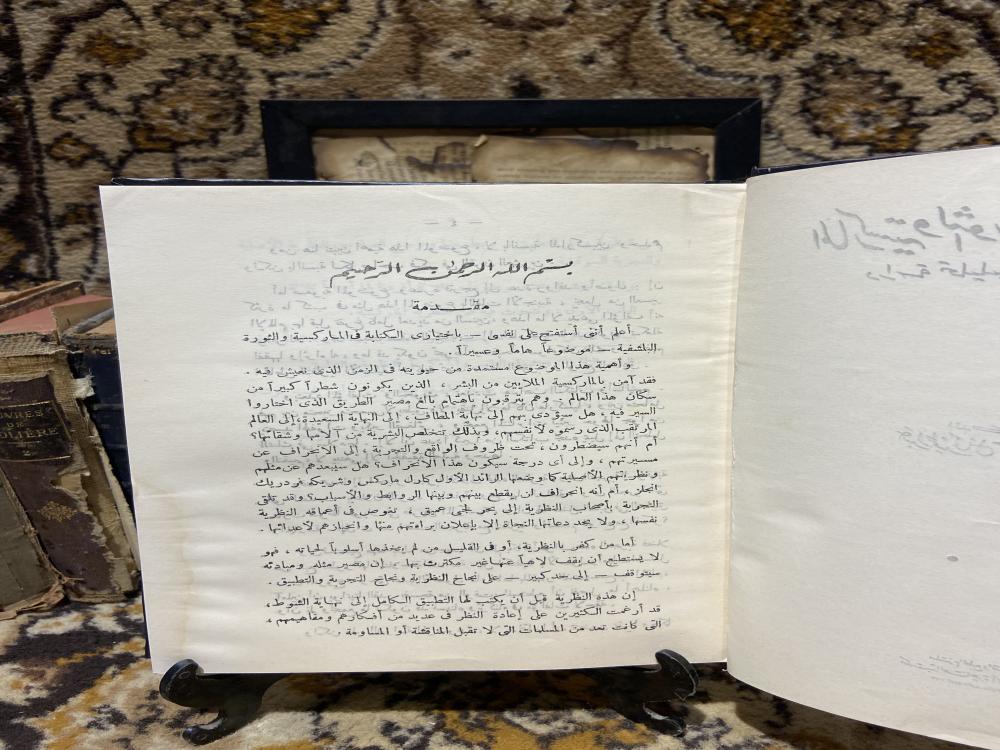 — ٤ —
بسم الله الرحمن الرحيم
مقدمة
أعلم أننى أستفتح على نفسى — باختيارى الكتابة فى الماركسية والثورة
البلشفية — موضوعاً هاماً وعسيراً .
وأهمية هذا الموضوع مستمدة من حيويته فى الزمن الذى نعيش فيه .
فقد آمن بالماركسية الملايين من البشر ، الذين يكونون شطراً كبيراً من
سكان هذا العالم . وهم يترقبون باهتمام بالغ مصير الطريق الذى اختاروا
السير فيه ، هل سيؤدى بهم إلى نهاية المطاف ، إلى النهاية السعيدة، إلى العالم
المرتقب الذى رسموه لأنفسهم، وبذلك تتخلص البشرية من آلامها وشقائها؟
أم أنهم سيضطرون ، تحت ظروف الواقع والتجربة ، إلى الانحراف عن
مسيرتهم ، وإلى أى درجة سيكون هذا الانحراف؟ هل سيبعدهم عن مثلهم
ونظريتهم الأصلية كما وضعها الرائد الأول كارل ماركس وشريكه فردريك
انجلز ، أم أنه انحراف لن يقطع بينهم وبينها الروابط والأسباب؟ وقد تلقى
التجربة بأصحاب النظرية إلى بحر لجى عميق ، تغوص فى أعماقه النظرية
نفسها ، ولا يجد دعاتها النجاة إلا بإعلان براءتهم منها وانحيازهم لأعدائها .
أما من كفر بالنظرية، أو فى القليل من لم يتخذها أسلوباً لحياته ، فهو
لا يستطيع أن يقف لاهياً عنها غير مكترث بها . إن مصير مثله ومبادئه
سيتوقف — إلى حد كبير — على نجاح النظرية ونجاح التجربة والتطبيق .
إن هذه النظرية قبل أن يكتب لها التطبيق الكامل إلى نهاية الشوط ،
قد أرغمت الكثيرين على إعادة النظر فى عديد من أفكارهم ومفاهيمهم ،
التى كانت تعد من المسلمات التى لا تقبل المناقشة أو المساومة ،
الماركسية والثورة
دراسة تحليلية
OUVRES
DE
MOLIERE
2